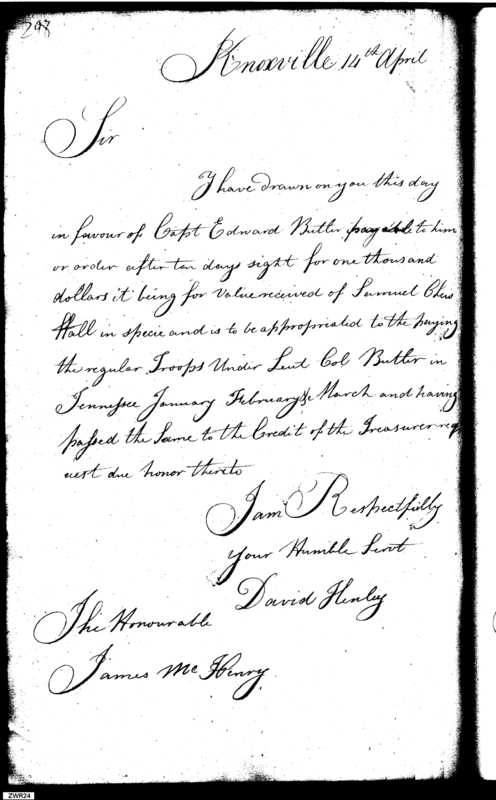 298
Knoxville 14th April
Sir
I have drawn on you this day
in favour of Capt Edward Butler payable to him
or order after ten days sight for one thousand
dollars it being for value received of Samuel Chew
Hall in specie and is to be appropriated to the paying
the regular Troops Under Leut Col Butler in
Tennessee January February & March and having
passed the Same to the Credit of the Treasurer req
uest due honor thereto
I am Respectfully
your Humble Servt
David Henley
The Honourable
James McHenry
ZWR24